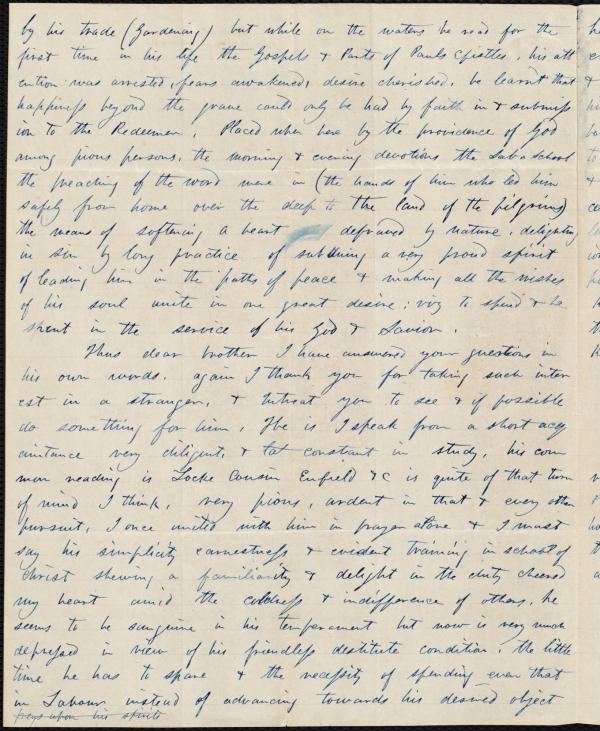 by his trade (Gardening) but while on the waters he read for the
first time in his life the Gospels & Parts of Pauls Epistles, his att
ention was arrested, fears awakened, desire cherished, he learnt that
happiness beyond the grave could only be had by faith in & submiss
ion to the Redeemer. Placed when here by the providence of God
among pious persons, the morning & evening devotions the Sab-a school
the preaching of the word were in (the hands of him who led him
safely from home over the deep to the land of the pilgrims)
the means of softening a heart depraved by nature, delighting
in sin by long practice of subduing a very proud spirit
of leading him in the paths of peace & making all the wishes
of his soul unite in one great desire; viz to spend & be
spent in the service of his God & Savior.
Thus dear brother I have answered your questions in
his own words. again I thank you for taking such inter
est in a stranger, & Intreat you to see & if possible
do something for him, He is I speak from a short acq
uaintance very diligent & constant in study, his com
mon reading is Locke Cousin Enfield &c is quite of that turn
of mind I think, very pious, ardent in that & every other
pursuit, I once united with him in prayer alone & I must
say his simplicity earnestness & evident training in school of
Christ shewing a familiarity & delight in the duty cheered
my heart amid the coldness & indifference of others, he
seems to be sanguine in his temperament but now is very much
depressed in view of his friendless destitute condition, the little
time he has to spare & the necessity of spending even that
in Labour instead of advancing towards his desired object
preys upon his spirits